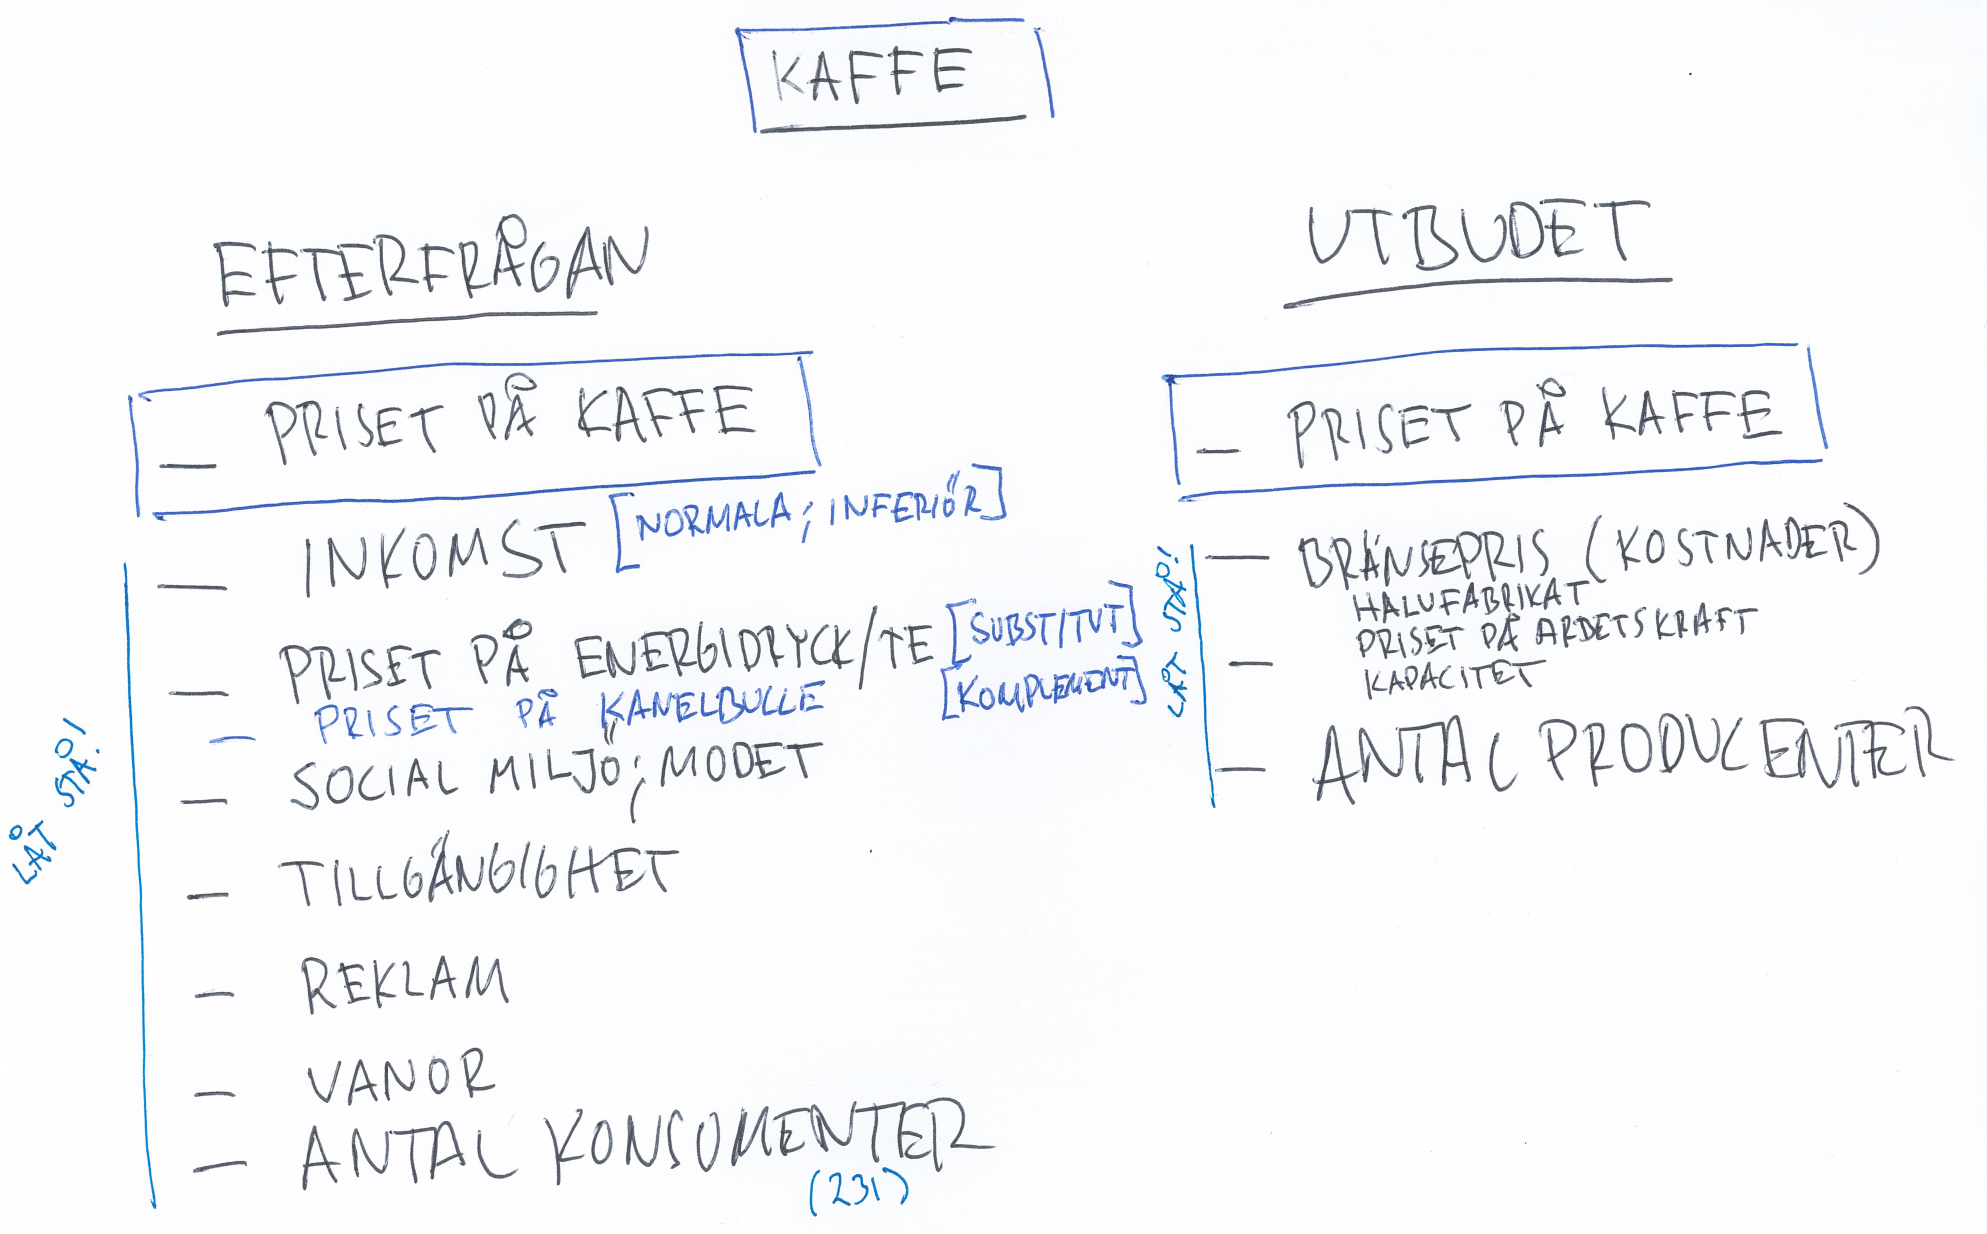 KAFFE
EFTERFRÅGAN
— PRISET PÅ KAFFE
— INKOMST [NORMALA; INFERIÖR]
— PRISET PÅ ENERGIDRYCK/TE [SUBSTITUT]
— PRISET PÅ KANELBULLE [KOMPLEMENT]
— SOCIAL MILJÖ; MODET
— TILLGÄNGIGHET
— REKLAM
— VANOR
— ANTAL KONSUMENTER
(231)
LÅT STÅ!
UTBUDET
— PRISET PÅ KAFFE
— BRÄNSEPRIS (KOSTNADER)
HALUFABRIKAT
PRISET PÅ ARBETSKRAFT
— KAPACITET
— ANTAL PRODUCENTER
LÅT STÅ!